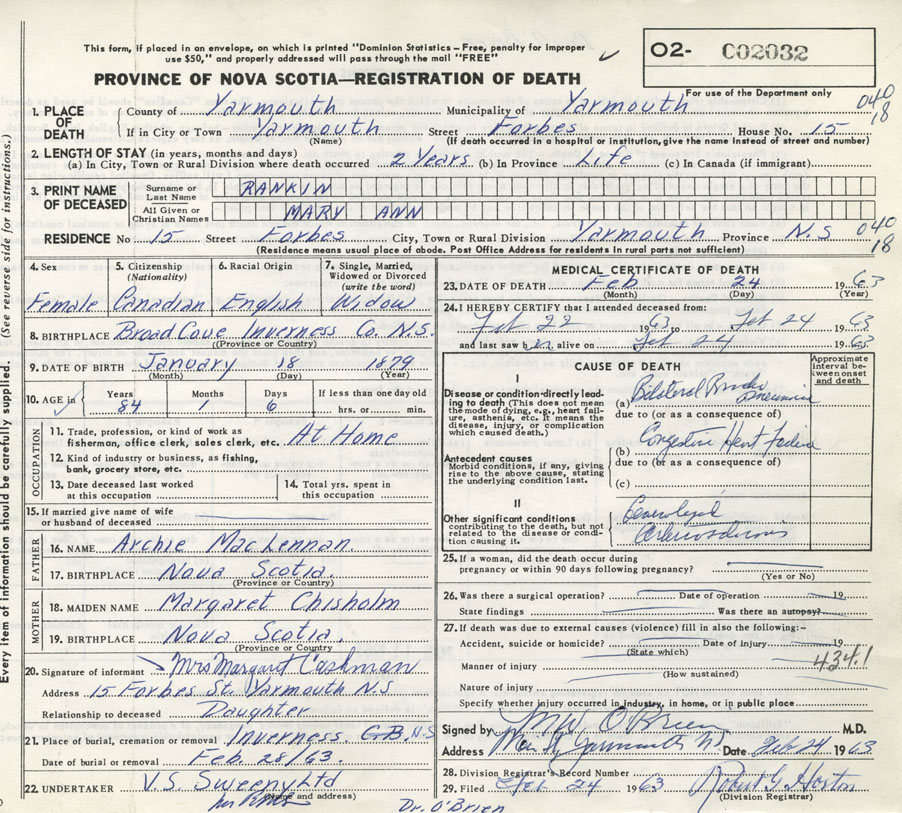 This form, if placed in an envelope, on which is printed "Dominion Statistics—Free, penalty for improper
use $50," and properly addressed will pass through the mail "FREE"
O2- C02032
PROVINCE OF NOVA SCOTIA—REGISTRATION OF DEATH
For use of the Department only
1. PLACE OF DEATH County of Yarmouth Municipality of Yarmouth 040
If in City or Town Yarmouth Street Forbes House No. 15 18
(Name) (If death occurred in a hospital or institution, give the name instead of street and number)
2. LENGTH OF STAY (in years, months and days)
(a) In City, Town or Rural Division where death occurred 2 Years (b) In Province Life (c) In Canada (if immigrant)
3. PRINT NAME OF DECEASED
Surname or Last Name RANKIN
All Given or Christian Names MARY ANN
RESIDENCE No 15 Street Forbes City, Town or Rural Division Yarmouth Province N.S 040
18
(Residence means usual place of abode. Post Office Address for residents in rural parts not sufficient)
4. Sex Female
5. Citizenship (Nationality) Canadian
6. Racial Origin English
7. Single, Married, Widowed or Divorced (write the word) Widow
8. BIRTHPLACE Broad Cove Inverness Co. N.S.
(Province or Country)
9. DATE OF BIRTH January 18 1879
(Month) (Day) (Year)
10. AGE in Years Months Days If less than one day old
84 1 6 hrs. or min.
OCCUPATION
11. Trade, profession, or kind of work as
fisherman, office clerk, sales clerk, etc. At Home
12. Kind of industry or business, as fishing,
bank, grocery store, etc.
13. Date deceased last worked
at this occupation
14. Total yrs. spent in
this occupation
15. If married give name of wife
or husband of deceased
FATHER
16. NAME Archie MacLennan.
17. BIRTHPLACE Nova Scotia.
(Province or Country)
MOTHER
18. MAIDEN NAME Margaret Chisholm
19. BIRTHPLACE Nova Scotia.
(Province or Country
20. Signature of informant Mrs Margaret Cashman
Address 15 Forbes St. Yarmouth N.S
Relationship to deceased Daughter
21. Place of burial, cremation or removal Inverness. C.B. N.S
Date of burial or removal Feb. 28/63.
22. UNDERTAKER V.S. Sweeny Ltd
(Name and address)
Dr. O'Brien
MEDICAL CERTIFICATE OF DEATH
23. DATE OF DEATH Feb 24 1963
(Month) (Day) (Year)
24. I HEREBY CERTIFY that I attended deceased from:
Feb 22 1963 to Feb 24 1963
and last saw alive on Feb 24 1963
CAUSE OF DEATH
Approximate interval between onset and death
I
Disease or condition directly leading to death (This does not mean the mode of dying, e.g., heart failure, asthenia, etc. It means the disease, injury, or complication which caused death.)
(a) Bilateral Broncho pneumonia
due to (or as a consequence of)
Antecedent causes
Morbid conditions, if any, giving rise to the above cause, stating the underlying condition last.
(b) Congestive Heart Failure
due to (or as a consequence of)
(c)
II
Other significant conditions
contributing to the death, but not related to the disease or condition causing it.
Generalized
Arteriosclerosis
25. If a woman, did the death occur during
pregnancy or within 90 days following pregnancy?
(Yes or No)
26. Was there a surgical operation? Date of operation 19
State findings Was there an autopsy?
27. If death was due to external causes (violence) fill in also the following:-
Accident, suicide or homicide? Date of injury 19
(State which)
434.1
Manner of injury
(How sustained)
Nature of injury
Specify whether injury occurred in industry, in home, or in public place
Signed by M W O'Brien M.D.
Address Yarmouth NS Date Feb 24 1963
28. Division Registrar's Record Number
29. Filed Feb 24 1963 Robert G. Horton
(Division Registrar)
(See reverse side for instructions.)
Every item of information should be carefully supplied.